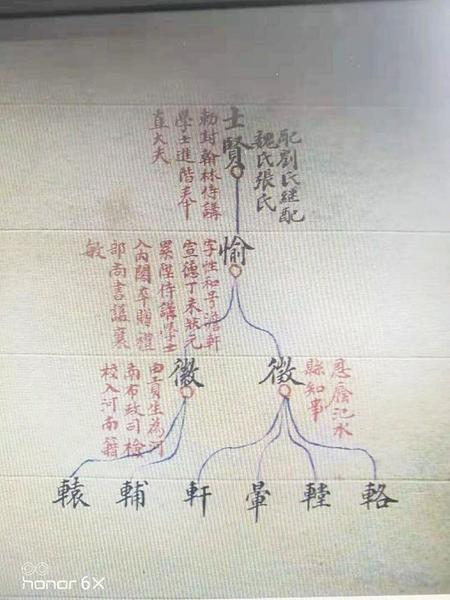 士賢
配劉氏継配
魏氏張氏
勅封翰林侍講
學士進階奉
直大夫
愉
字性和号澹軒
宣德丁未狀元
累陞侍講學士
入內閣卒贈禮
部尚書諡襄
敏
徽
恩廕汜水
縣知事
徽
由貢生為河
南布政司檢
校入河南籍
轅
輔
軒
轝
輊
輅
honor 6X